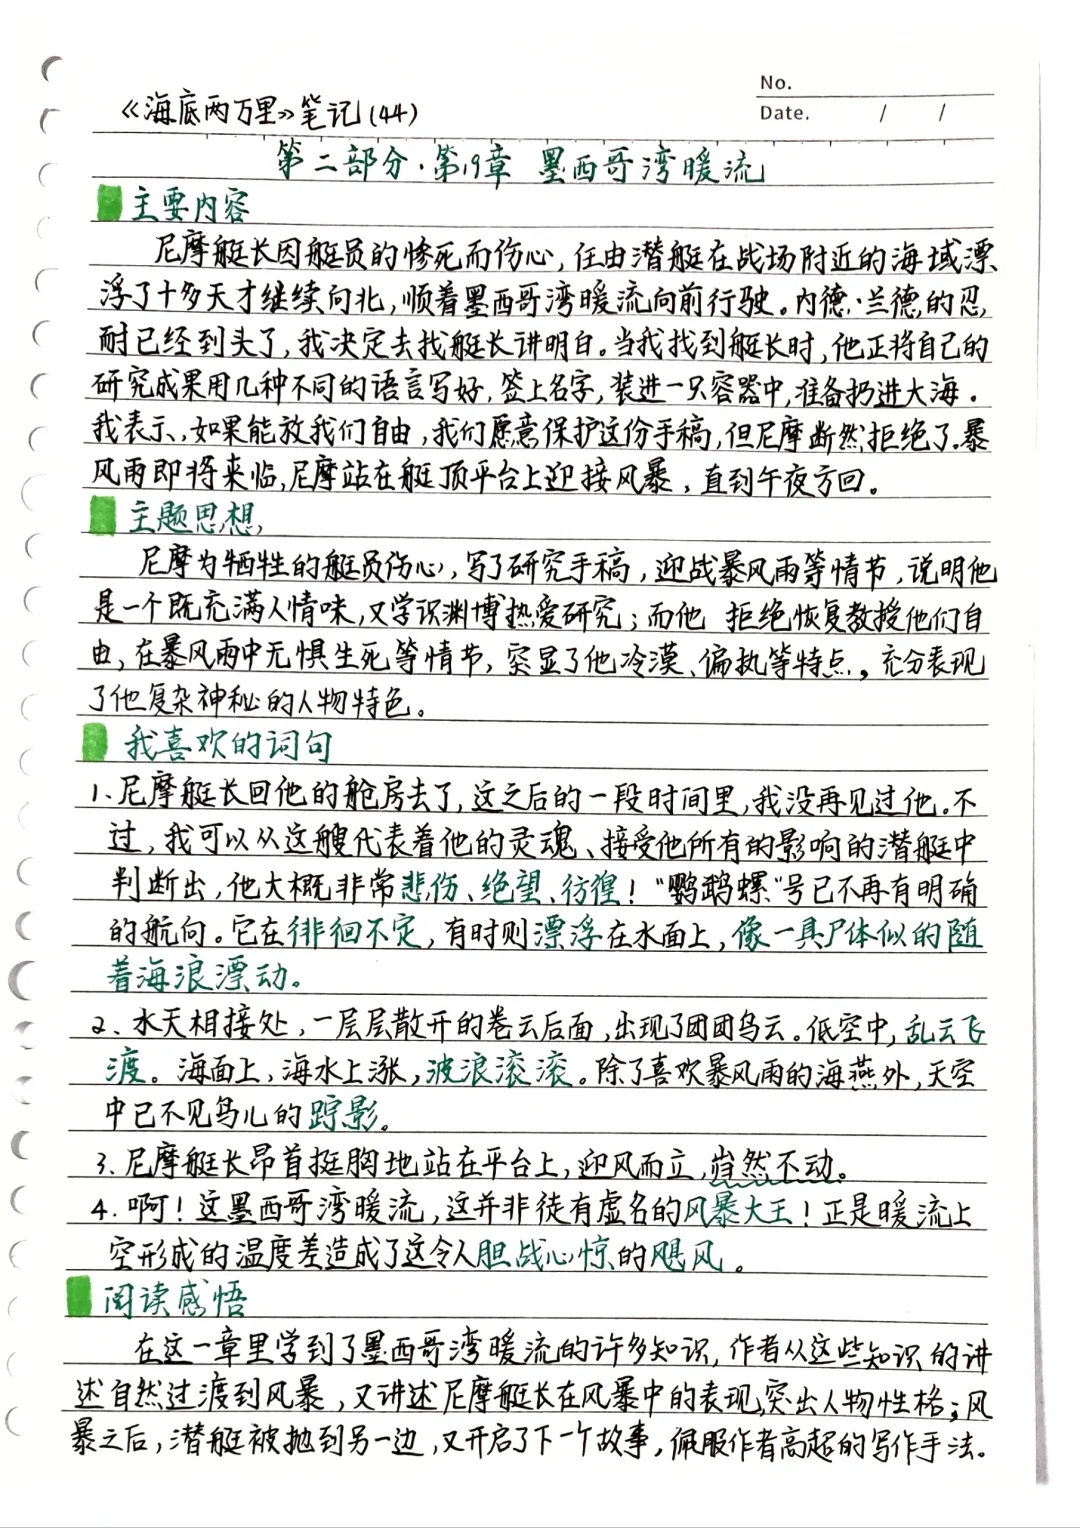 No.
《海底两万里》笔记(44)
Date. / /
第二部分·第19章 墨西哥湾暖流
主要内容
尼摩艇长因艇员的惨死而伤心,任由潜艇在战场附近的海域漂
浮了十多天才继续向北,顺着墨西哥湾暖流向前行驶。内德·兰德的忍
耐已经到头了,我决定去找艇长讲明白。当我找到艇长时,他正将自己的
研究成果用几种不同的语言写好,签上名字,装进一只容器中,准备扔进大海。
我表示,如果能放我们自由,我们愿意保护这份手稿,但尼摩断然拒绝了。暴
风雨即将来临,尼摩站在艇顶平台上迎接风暴,直到午夜方回。
主题思想
尼摩为牺牲的艇员伤心,写了研究手稿,迎战暴风雨等情节,说明他
是一个既充满人情味,又学识渊博热爱研究;而他 拒绝恢复教授他们自
由,在暴风雨中无惧生死等情节,突显了他冷漠、偏执等特点。充分表现
了他复杂神秘的人物特色。
我喜欢的词句
1、尼摩艇长回他的舱房去了,这之后的一段时间里,我没再见过他。不
过,我可以从这艘代表着他的灵魂、接受他所有的影响的潜艇中
判断出,他大概非常悲伤、绝望、彷徨!“鹦鹉螺”号已不再有明确
的航向。它在徘徊不定,有时则漂浮在水面上,像一具尸体似的随
着海浪漂动。
2、水天相接处,一层层散开的卷云后面,出现了团团乌云。低空中,乱云飞
渡。海面上,海水上涨,波浪滚滚。除了喜欢暴风雨的海燕外,天空
中已不见鸟儿的踪影。
3.尼摩艇长昂首挺胸地站在平台上,迎风而立,岿然不动。
4.啊!这墨西哥湾暖流,这并非徒有虚名的风暴大王!正是暖流上
空形成的温度差造成了这令人胆战心惊的飓风。
阅读感悟
在这一章里学到了墨西哥湾暖流的许多知识,作者从这些知识的讲
述自然过渡到风暴,又讲述尼摩艇长在风暴中的表现,突出人物性格;风
暴之后,潜艇被抛到另一边,又开启了下一个故事,佩服作者高超的写作手法。